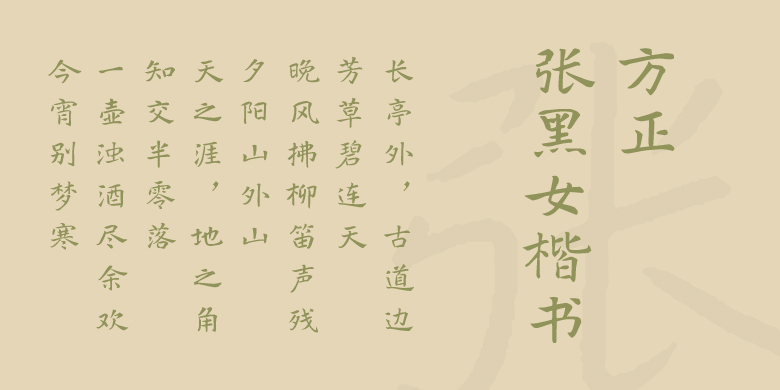 方正
张黑女楷书
长亭外，古道边
芳草碧连天
晚风拂柳笛声残
夕阳山外山
天之涯，地之角
知交半零落
一壶浊酒尽余欢
今宵别梦寒
张